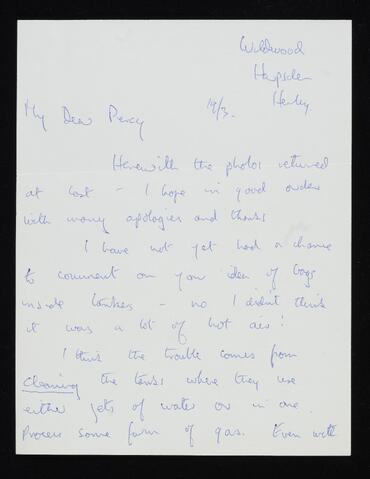 Wildwood
Harpsden
Henley
My Dear Percy
19/3.
Herewith the photos returned
at last - I hope in good order
with many apologies and thanks
I have not yet had a chance
to comment on your idea of bags
inside tankers - no I didn't think
it was a lot of hot air!
I think the trouble comes from
cleaning the tanks where they use
either jets of water or in one
process some form of gas. Even with